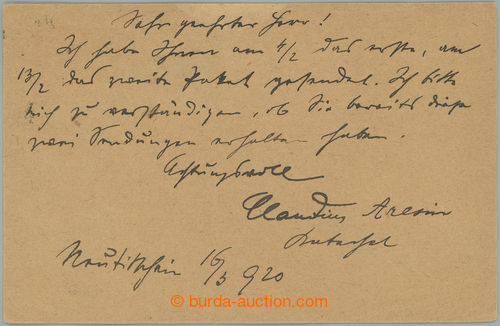 Sehr geehrter Herr!
Ich habe Ihnen am 4/2 das erste, am
13/2 das zweite Paket gesendet. Ich bitte
mich zu verständigen, ob Sie bereits diese
zwei Sendungen erhalten haben.
Achtungsvoll
Claudius
Neutitschein 16/3 920
© burda-auction.com